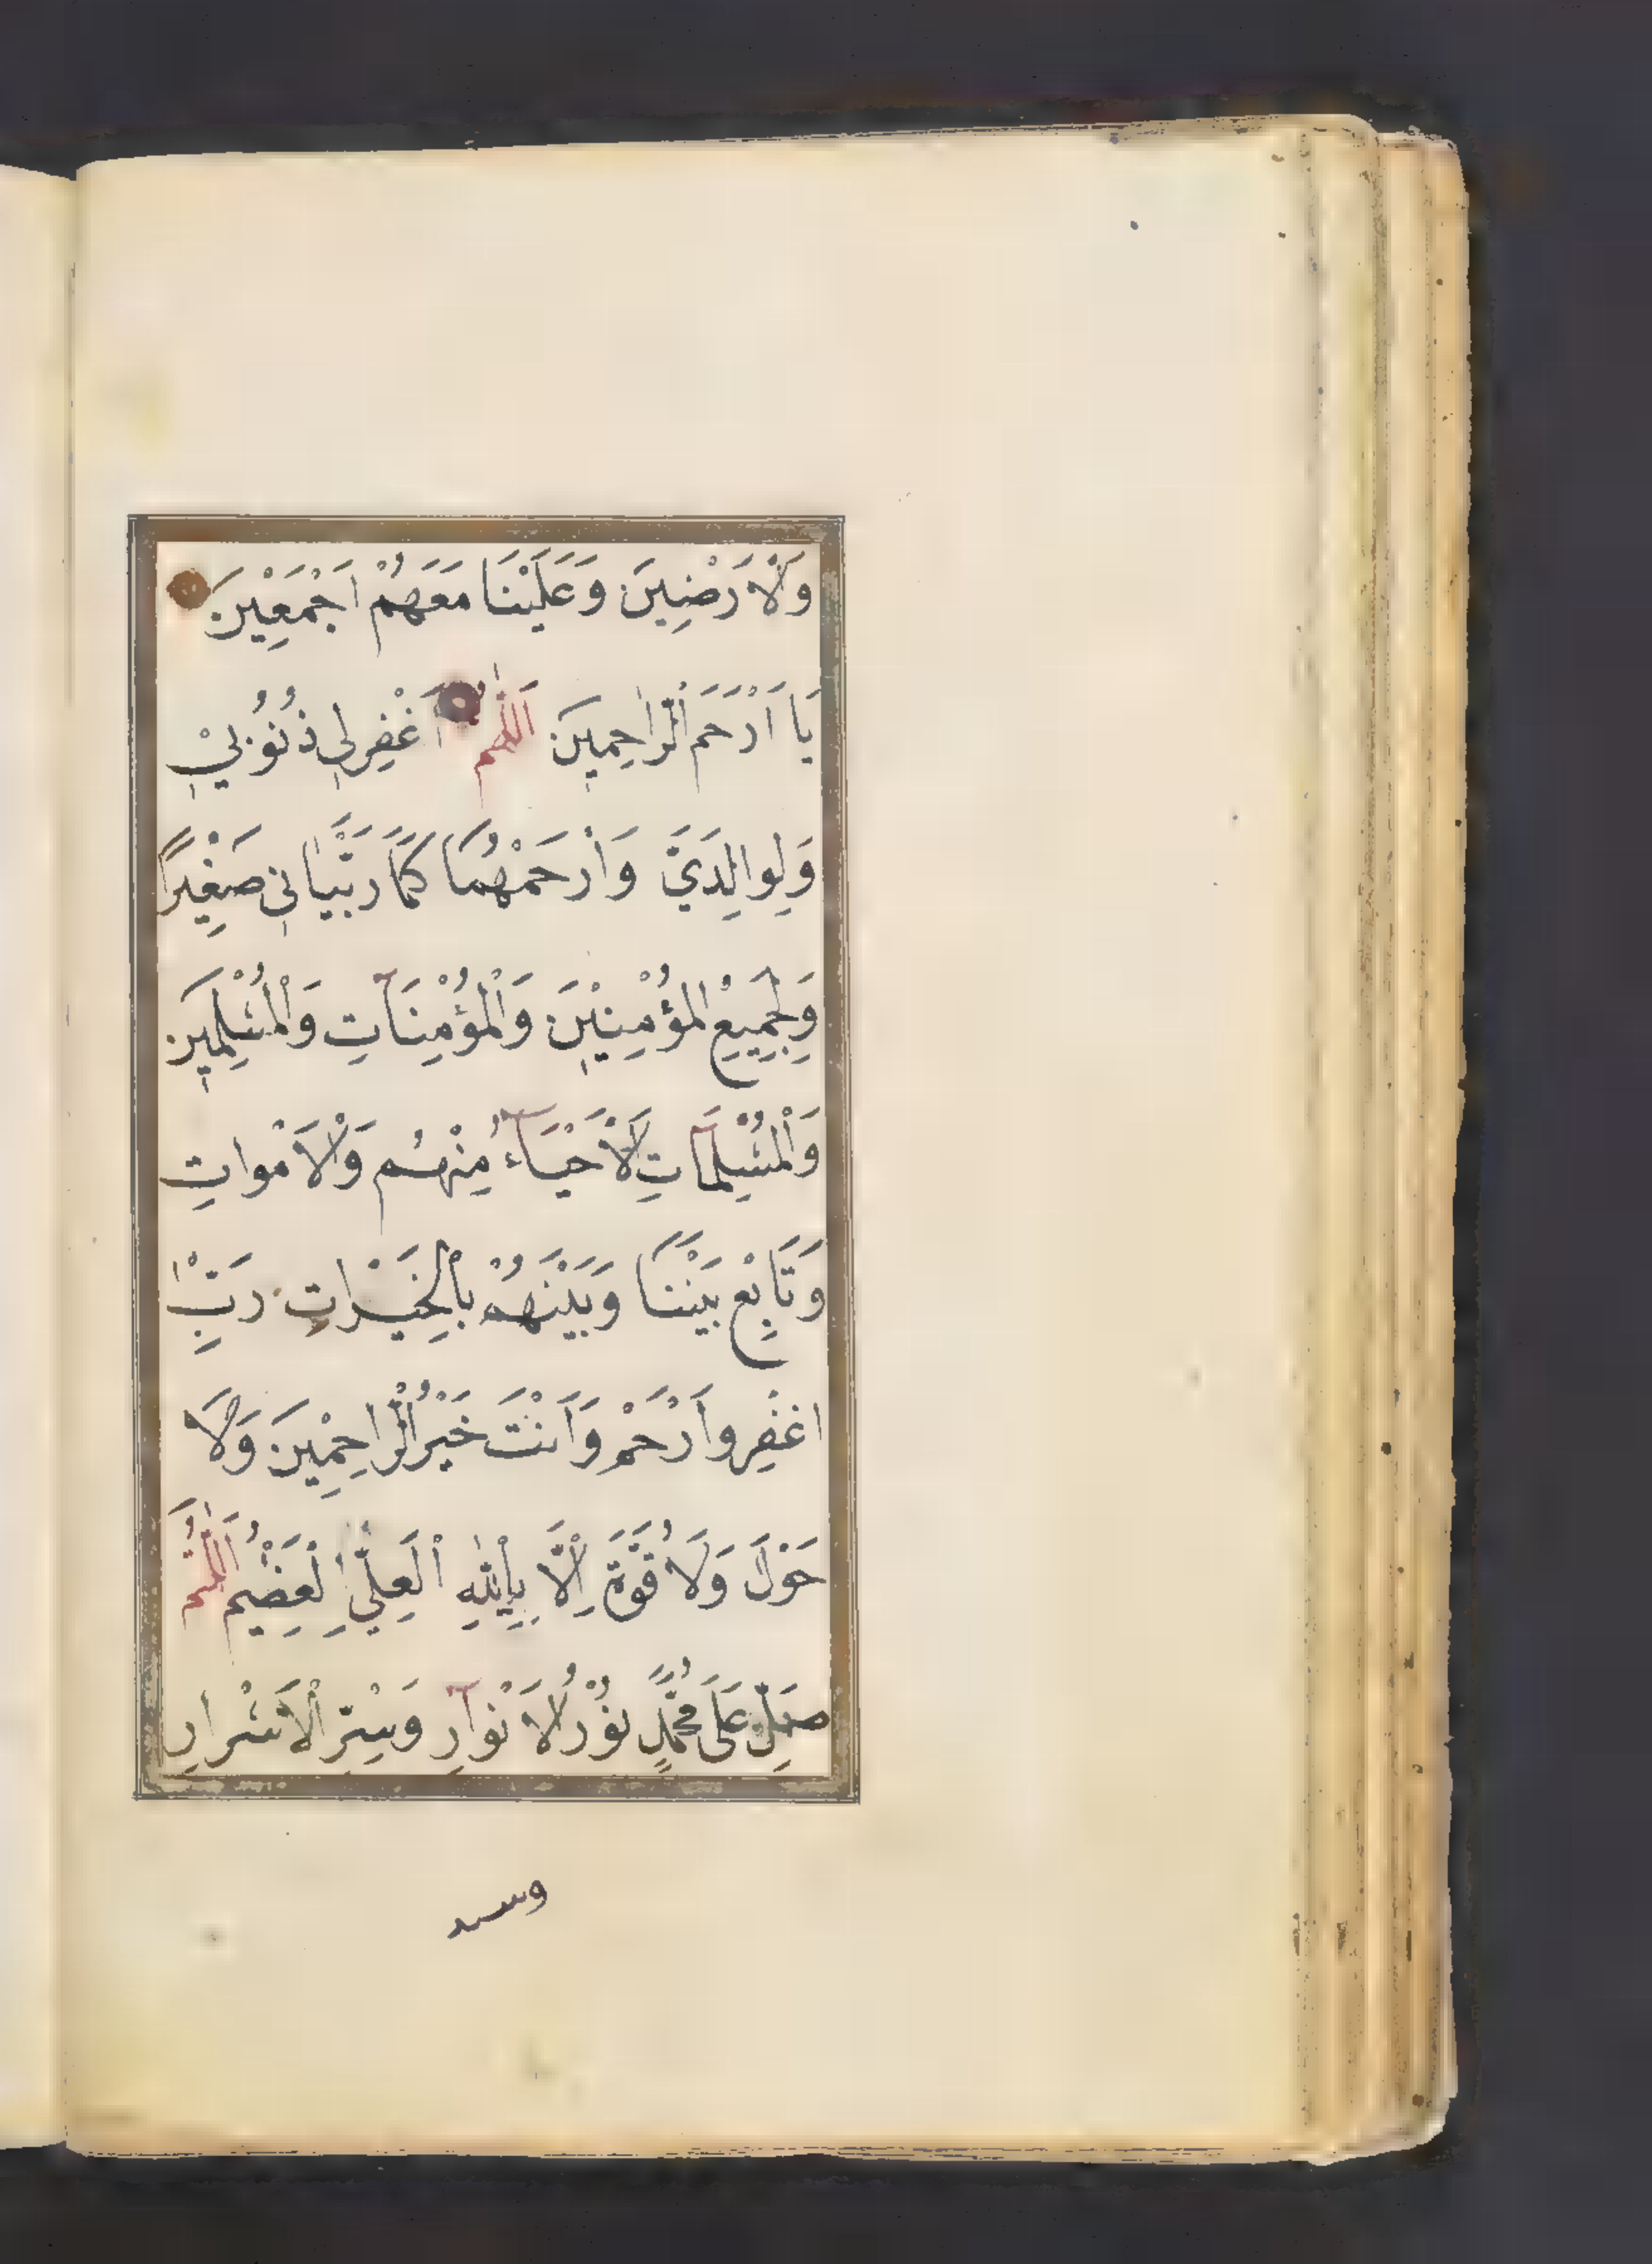 وَالْاَرَضِينَ وَعَلَيْنَا مَعَهُمْ اَجْمَعِيْنَ
يَا اَرْحَمَ الرَّاحِمِينَ اَللّٰهُمَّ اَغْفِرلِي ذُنُوُبِيْ
وَلِوالِدَيَّ وَأرْحَمْهُمَا كَمَا رَبَّيَانِي صَغِيْرًا
وَلِجَمِيِعِ المُؤْمِنِيْنَ وَالْمُؤْمِنَاتِ وَالْمُسْلِمِينَ
وَالْمُسْلِمَاتِ اَلْاَحْيَاءُ مِنْهُم وَالْاَمْواتِ
وَتَابِعْ بَيْنَنَا وَبَيْنَهُمْ بِالْخَيْرَاتِ رَبِّ
اغْفِر وَاَرْحَمْ وَاَنْتَ خَيْرُ الرَّاحِمْينَ وَلَا
حَوْلَ وَلَا قُوَّةَ اِلَّا بِاللّٰهِ الْعَلِيِّ الْعَظِيمُ اَللّٰهُمَّ
صَلِّ عَلَى مُحَمَّدٍ نُوْرُ الْاَنْوَارِ وَسِرِّ الْاَسْرارِ
وسيد